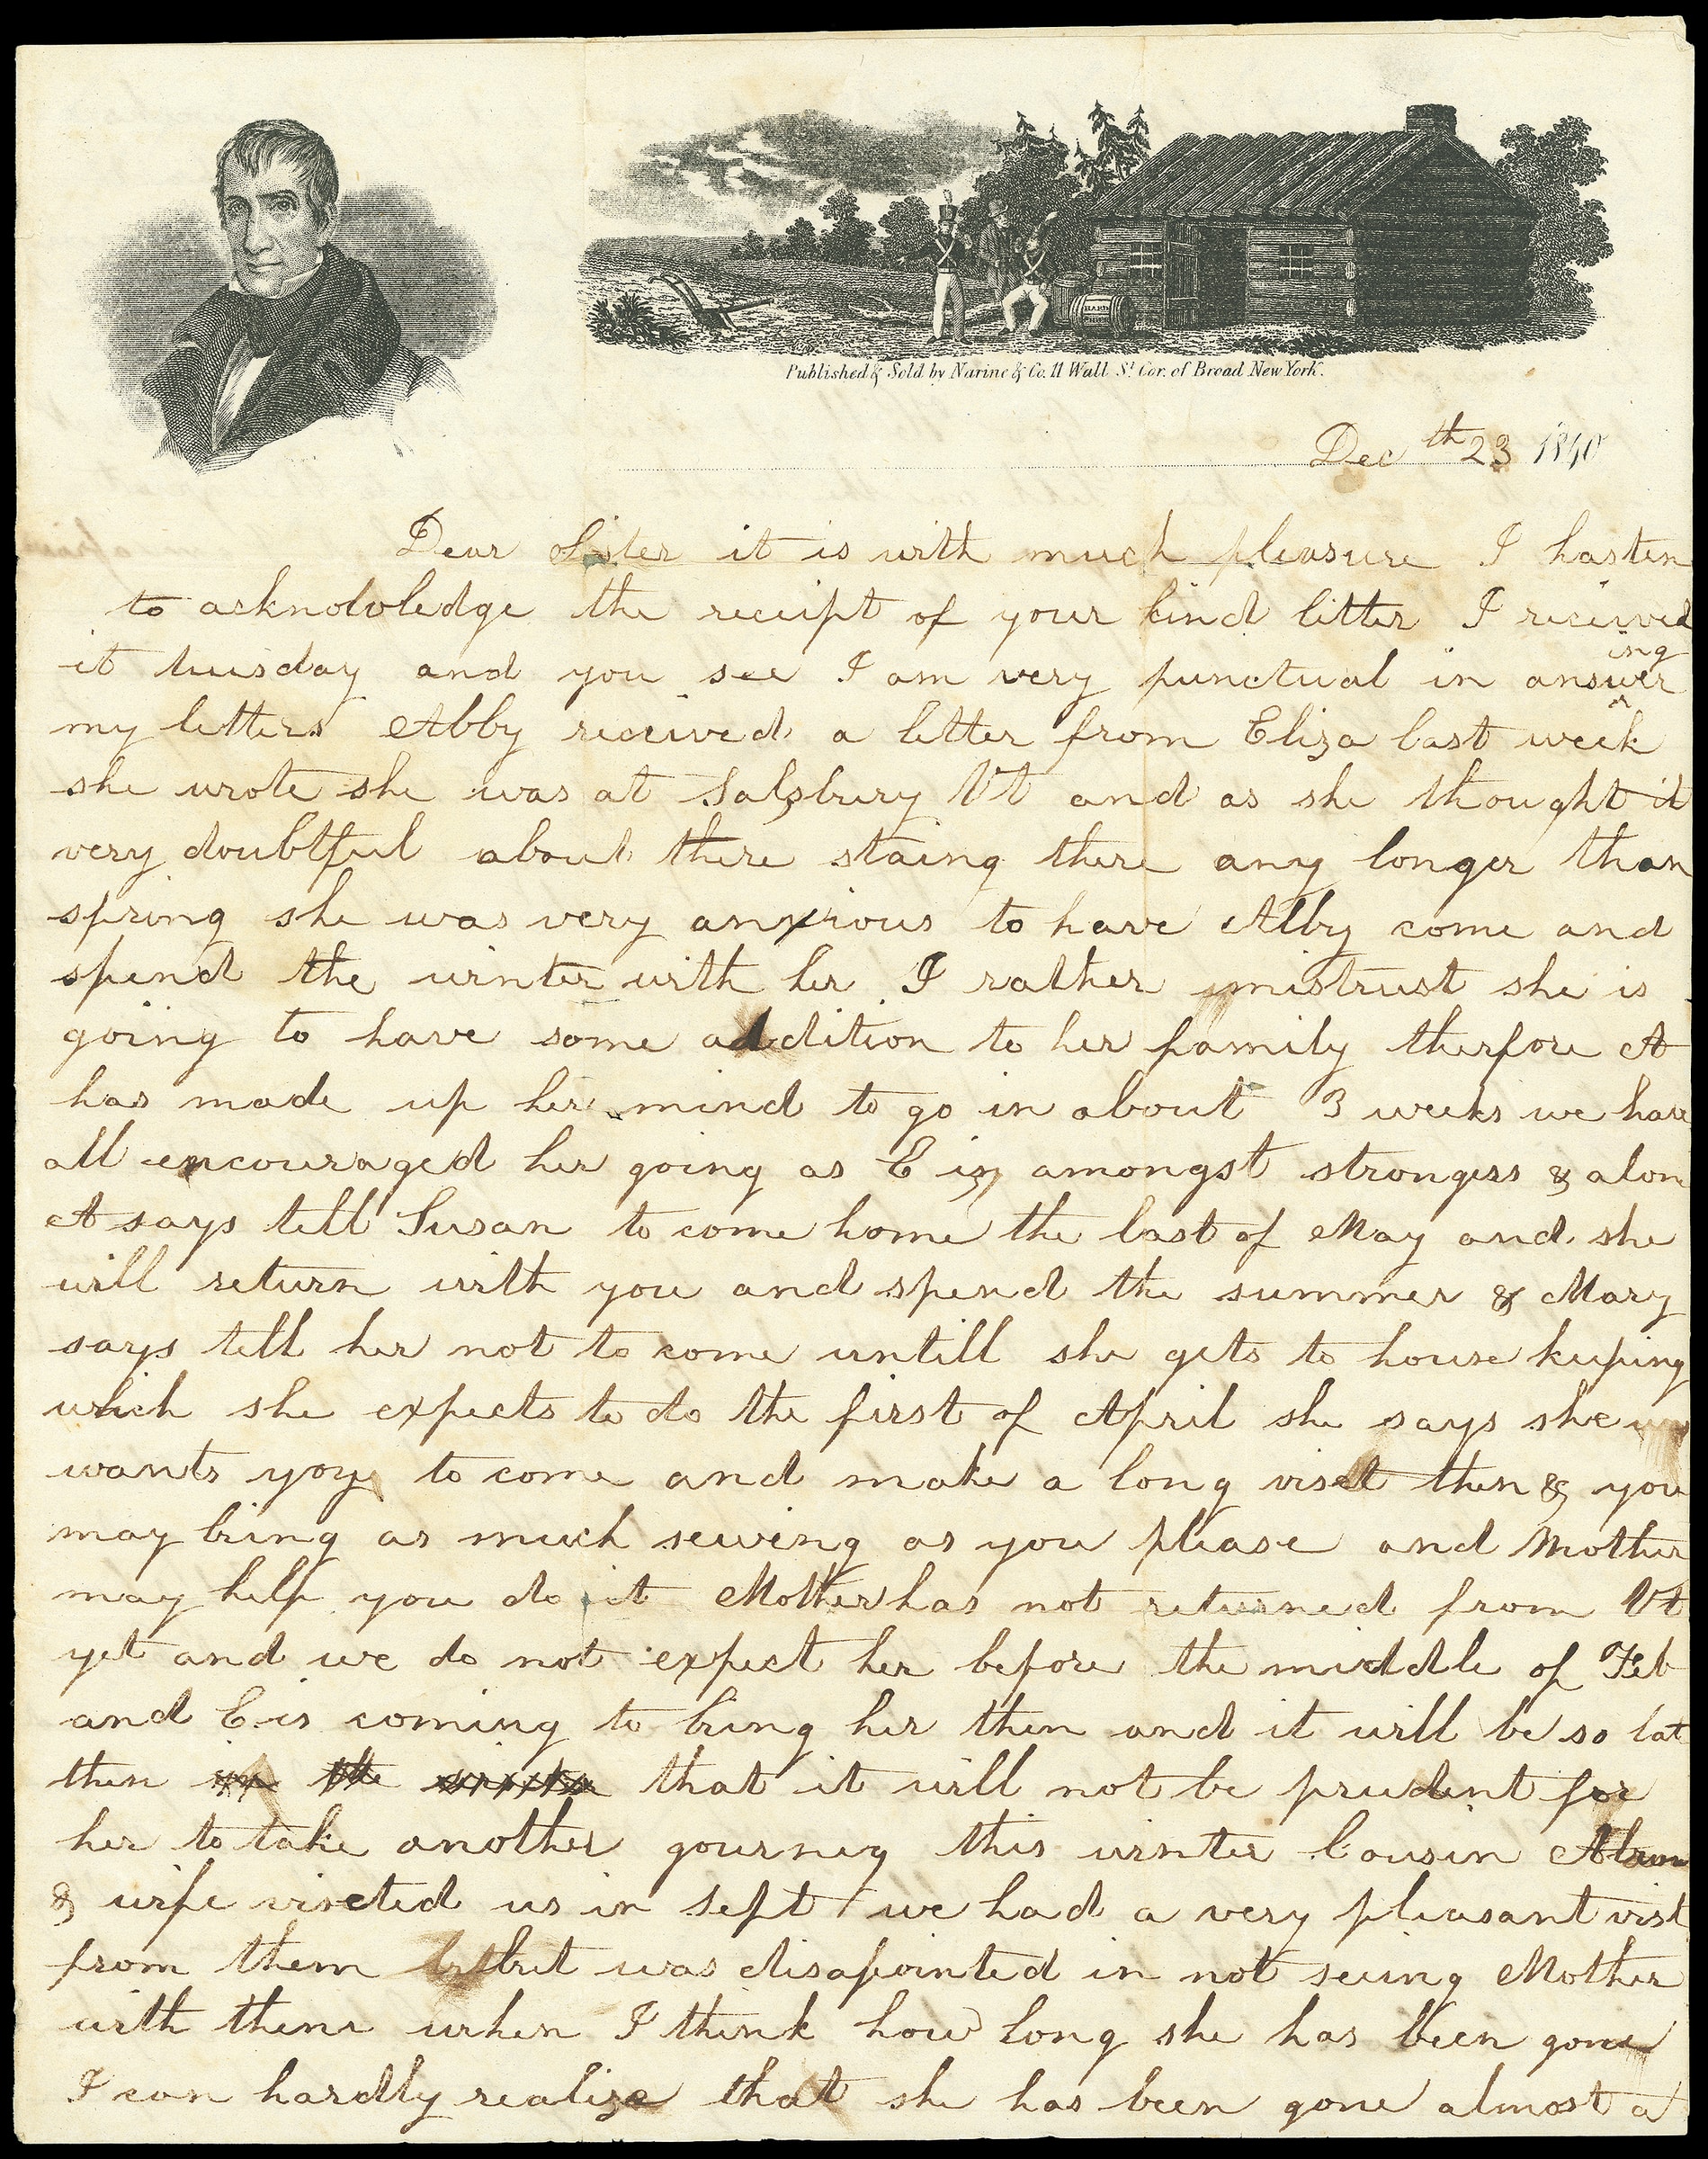 HARD
Published & Sold by Narine & Co. 11 Wall St. Cor. of Broad New York.
Dec th 23 1840
Dear Sister it is with much pleasure I hasten
to acknowledge the receipt of your kind letter I received
it tuisday and you see I am very punctual in answering
my letters Abby received a letter from Eliza last week
she wrote she was at Salsbury Vt and as she thought it
very doubtful about there staing there any longer than
spring she was very anxious to have Abby come and
spend the winter with her I rather mistrust she is
going to have some addition to her family therfore A
has made up her mind to go in about 3 weeks we have
all encouraged her going as E is amongst strongers & alon
A says tell Susan to come home the last of May and she
will return with you and spend the summer & Mary
says tell her not to come untill she gets to house keeping
which she expects to do the first of April she says she
wants you to come and make a long viset then & you
may bring as much sewing as you please and Mother
may help you do it Mother has not returned from Vt
yet and we do not expect her before the middle of Feb
and E is coming to bring her then and it will be so lat
then in the winter that it will not be prudent for
her to take another gourney this winter Cousin
& wife viseted us in Sept we had a very pleasant visit
from them but was disapointed in not seeing Mother
with them when I think how long she has been gone
I can hardly realize that she has been gone almost a